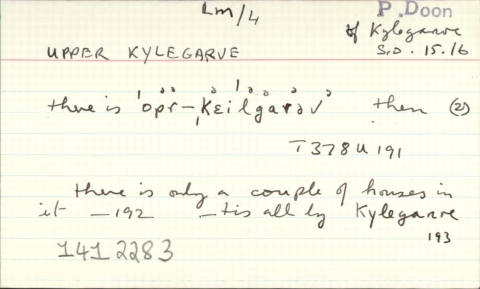 Lm/4
P. Doon
of Kylegarve
S.O. 15.16
UPPER KYLEGARVE
there is 'opr-ˌKeilgarəv' then (2)
T378U191
there is only a couple of houses in
it —192 —tis all by Kylegarve
193
1412283